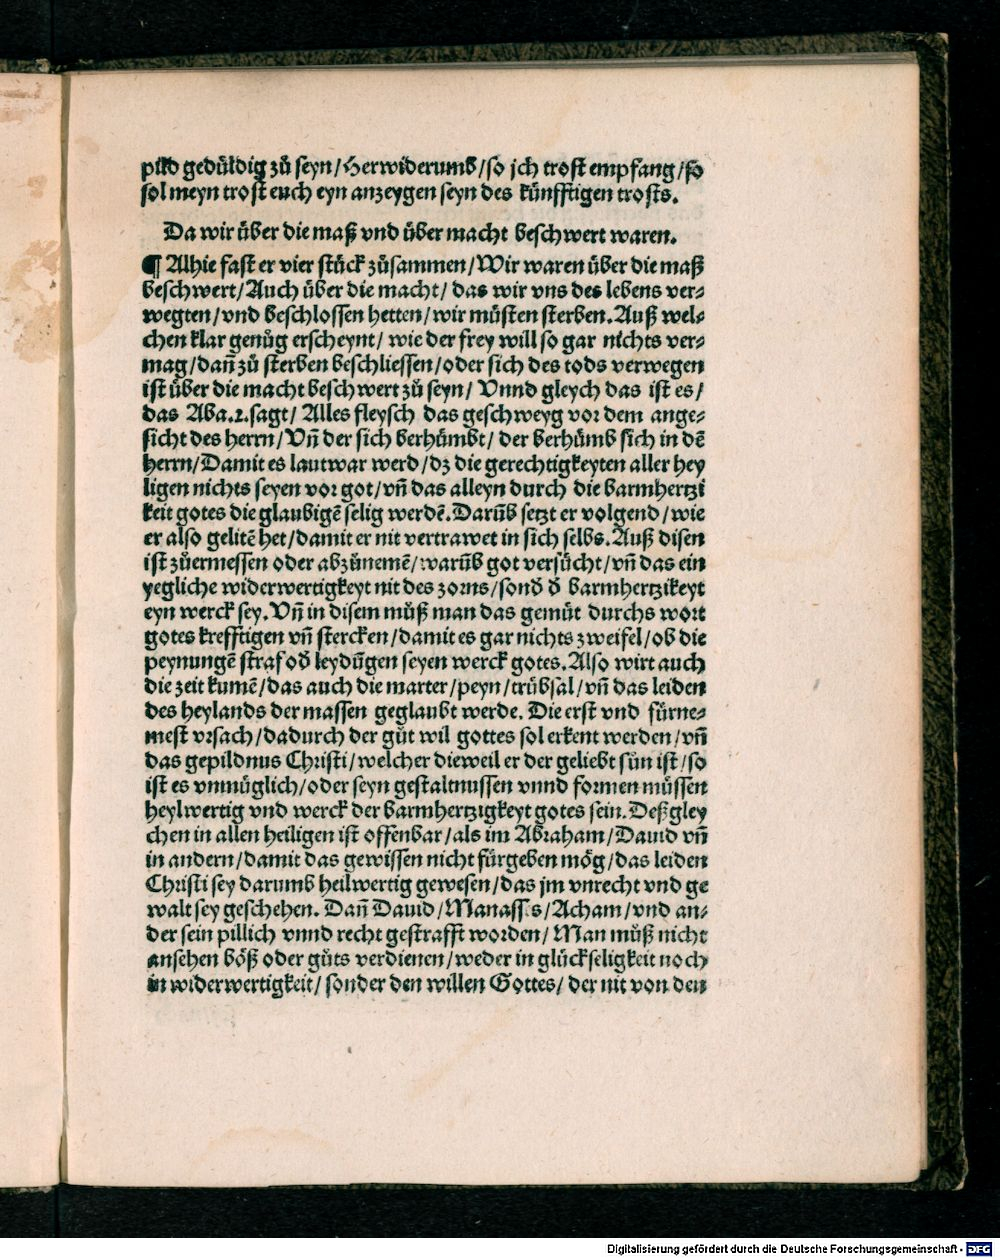 pild gedůldig zů seyn/Herwiderumb/so jch trost empfang/so
sol meyn trost euch eyn anzeygen seyn des kůnfftigen trosts.
Da wir ůber die maß vnd ůber macht beschwert waren.
¶ Alhie fast er vier stůck zůsammen/Wir waren ůber die maß
beschwert/Auch ůber die macht/das wir vns des lebens ver-
wegten/vnd beschlossen hetten/wir můsten sterben. Auß wel-
chen klar genůg erscheynt/wie der frey will so gar nichts ver-
mag/dañ zů sterben beschliessen/oder sich des tods verwegen
ist ůber die macht beschwert zů seyn/Vnnd gleych das ist es/
das Aba.2.sagt/Alles fleysch das geschweyg vor dem ange-
sicht des herrn/Vñ der sich berhůmbt/der berhůmb sich in dē
herrn/Damit es lautwar werd/dz die gerechtigkeyten aller hey
ligen nichts seyen vor got/vñ das alleyn durch die barmhertzi
keit gotes die glaubigē selig werdē. Darūb setzt er volgend/wie
er also gelitē het/damit er nit vertrawet in sich selbs. Auß disen
ist zůermessen oder abzůnemē/warūb got versůcht/vñ das ein
yegliche widerwertigkeyt nit des zorns/sond̄ d̄ barmhertzikeyt
eyn werck sey. Vñ in disem můß man das gemůt durchs wort
gotes krefftigen vñ stercken/damit es gar nichts zweifel/ob die
peynungē straf od̄ leydūgen seyen werck gotes. Also wirt auch
die zeit kumē/das auch die marter/peyn/trůbsal/vñ das leiden
des heylands der massen geglaubt werde. Die erst vnd fůrne-
mest vrsach/dadurch der gůt wil gottes sol erkent werden/vñ
das gepildnus Christi/welcher dieweil er der geliebt sůn ist/so
ist es vnmůglich/oder seyn gestaltnussen vnnd formen můssen
heylwertig vnd werck der barmhertzigkeyt gotes sein. Deßgley
chen in allen heiligen ist offenbar/als im Abraham/Dauid vñ
in andern/damit das gewissen nicht fůrgeben mög/das leiden
Christi sey darumb heilwertig gewesen/das jm vnrecht vnd ge
walt sey geschehen. Dañ Dauid/Manasses/Acham/vnd an-
der sein pillich vnnd recht gestrafft worden/Man můß nicht
ansehen böß oder gůts verdienen/weder in glůckseligkeit noch
in widerwertigkeit/sonder den willen Gottes/der nit von den
Digitalisierung gefördert durch die Deutsche Forschungsgemeinschaft - DFG